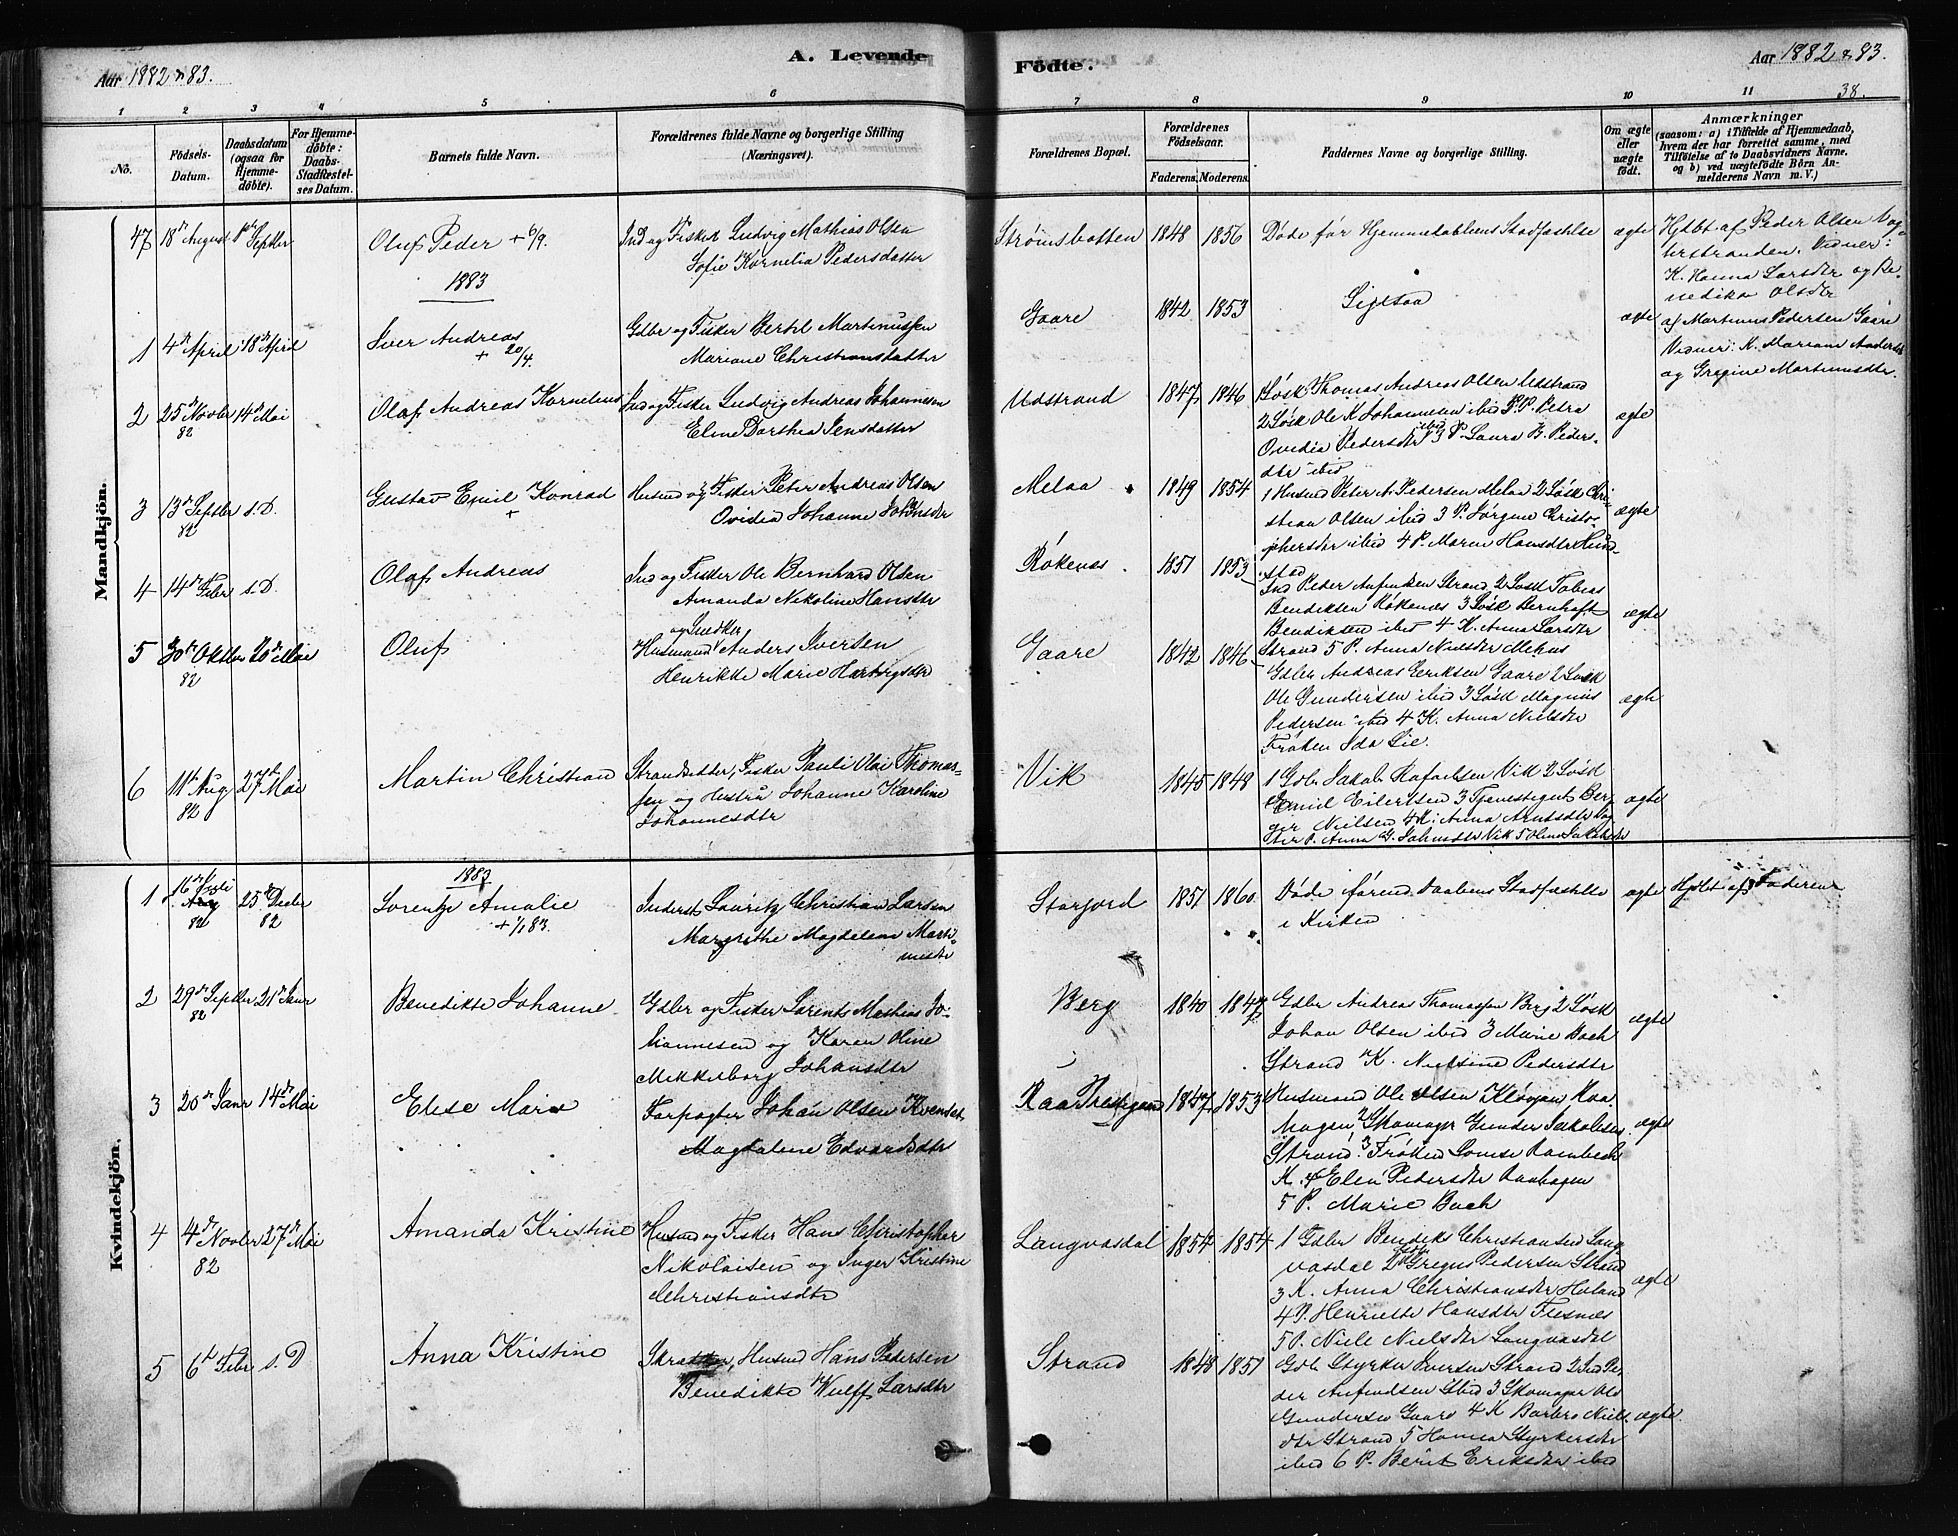 Aar 1882 & 83.
A. Levende
Födte.
Aar 1882 & 83.
38.
1 2 3 4 5 6 7 8 9 10 11
No.
Födsels-Datum.
Daabsdatum (ogsaa for Hjemme-döbte).
For Hjemme-döbte: Daabs-Stadfæstel-ses Datum.
Barnets fulde Navn.
Forældrenes fulde Navne og borgerlige Stilling (Næringsvei).
Forældrenes Bopæl.
Forældrenes Födselsaar.
Faderens. Moderens.
Faddernes Navne og borgerlige Stilling.
Om ægte eller uægte födt.
Anmærkninger
(saasom: a) i Tilfælde af Hjemmedaab,
hvem der har forrettet samme, med
Tilföielse af to Daabsvidners Navne.
og b) ved uægtefödte Börn An-
melderens Navn m. V.)
Mandkjön.
47 18de August 1ste Septbr Oluf Peder + 6/9. Ind og Fisker Ludvig Mathias Olsen
Sofie Kornelia Pedersdatter
Strömsbotten 1848 1856 Döde för Hjemmedaabens Stadfæstelse ægte
Hjdbt af Peder Olsen
Vidner:
K. Hanna Larsdtr og Be-
nedikte Olsdtr
1883
1 4de April 18de April Iver Andreas + 20/4. Gdbr og Fisker Bertil Martinussen
Mariane Christiansdatter
Gaare 1842 1853 Ligesaa ægte
af Martinus Pedersen Gaare
Vidner: K. Mariane Andersd
og Gregine Martinusdtr.
2 25de Novbr 82 14de Mai Olaf Andreas Kornelius Ind og Fisker Ludvig Andreas Johannesen
Eline Dorthea Jensdatter
Udstrand 1847 1846 Lösk Thomas Andreas Olsen Udstrand
2 Lösk Ole K Johannesen ibid P. Petra
Ovidia Pedersdtr ibid 3 P. Laura B. Peders-
dtr ibid
ægte
3 13de Septbr 82 s. D. Gustav Emil Konrad + Husmd og Fisker Peter Andreas Olsen
Ovidia Johanne Johnsdtr
Melaa 1849 1854 1 Husmd Peter A. Pedersen Melaa 2 Lösk Chri-
stian Olsen ibid 3 P. Jörgine Christo-
phersdtr ibid 4 P. Maren Hansdtr Sund-
stad
ægte
4 14de Febr s. D. Olaf Andreas Ind og Fisker Ole Bernhard Olsen
Amanda Nikoline Hansdtr
Rökenes 1851 1853 Ind Peder Anfindsen Strand 2 Lösk Tobias
Bendiksen Rökenes 3 Lösk Bernhoft
Bendiksen ibid 4 K. Anna Larsdtr
Strand 5 P. Anna Nielsdtr
ægte
5 30de Oktbr 82 20de Mai Oluf Husmand og Snedker Anders Iversen
Henrikke Marie Hartvigsdtr
Gaare 1842 1846 Gdbr Andreas Eriksen Gaare 2 Lösk
Ole Gundersen ibid 3 Lösk Magnus
Pedersen ibid 4 K. Anna Nielsdtr
Fröken Ida Lie.
ægte
6 11te Aug 82 27de Mai Martin Christian Strandsidder, Fisker Pauli Olai Thomas-
sen og Hustru Johanne Karoline
Johannesdtr
Vik 1845 1848 1 Gdbr Jakob Rafaelsen Vik 2 Lösk
Emil Eilertsen 3 Tjenestegut Ber-
ger Nielsen 4 K. Anna Arntsdtr
P. Anna G. Johnsdtr Vik 5 Oline Jakobsdtr
ægte
Kvindekjön.
1883
1 16de Juli 82 25de Decbr 82 Lorentze Amalie + 1/1 83. Inderst Lauritz Christian Larsen
Margrethe Magdelena Marti-
nusdtr
Storjord 1851 1860 Döde förend Daabens Stadfæstelse
i Kirken
ægte Hjdbt af Faderen
2 29de Septbr 82 21de Janr Benedikte Johanne Gdbr og Fisker Lorents Mathias Jo-
hannesen og Karen Oline
Mikkelborg Johansdtr
Berg 1840 1847 Gdbr Andreas Thomassen Berg 2 Lösk
Johan Olsen ibid 3 Marie Bach
Strand K. Nielsine Pedersdtr
ægte
3 20de Janr 14de Mai Elise Marie Forpagter Johan Olsen Kvendet
Magdalene Edvardsdtr
Raa Prestegaard 1847 1853 Husmand Ole Olsen Klövjan Raa
2 Skomager Gunder Jakobsen
Strand 3 Fröken Lovise Rambech
K. 4 Elen Pedersdtr
5 P. Marie Bach
ægte
4 4de Novbr 82 27de Mai Amanda Kristine Husmd og Fisker Hans Christopher
Nikolaisen og Inger Kristine
Christiansdtr
Langvasdal 1854 1854 1 Gdbr Bendiks Christiansen Lang-
vasdal 2 Gregus Pedersen Strand
3 K. Anna Christiansdtr
4 P. Henriette Hansdtr
5 P. Nielsdtr Langvasdal
ægte
5 6te Febr s. D Anna Kristine Skrædder, Husmd Hans Pedersen
Benedikte Wulff Larsdtr
Strand 1848 1851 Gdb Styrker Iversen Strand 2 Ind Pe-
der Anfindsen ibid 3 Skomager Ole
Gundersen Gaare 4 K Barbro Niels-
dtr Strand 5 Hanna Styrkersdtr
ibid 6 P. Berit Eriksdtr ibid
ægte